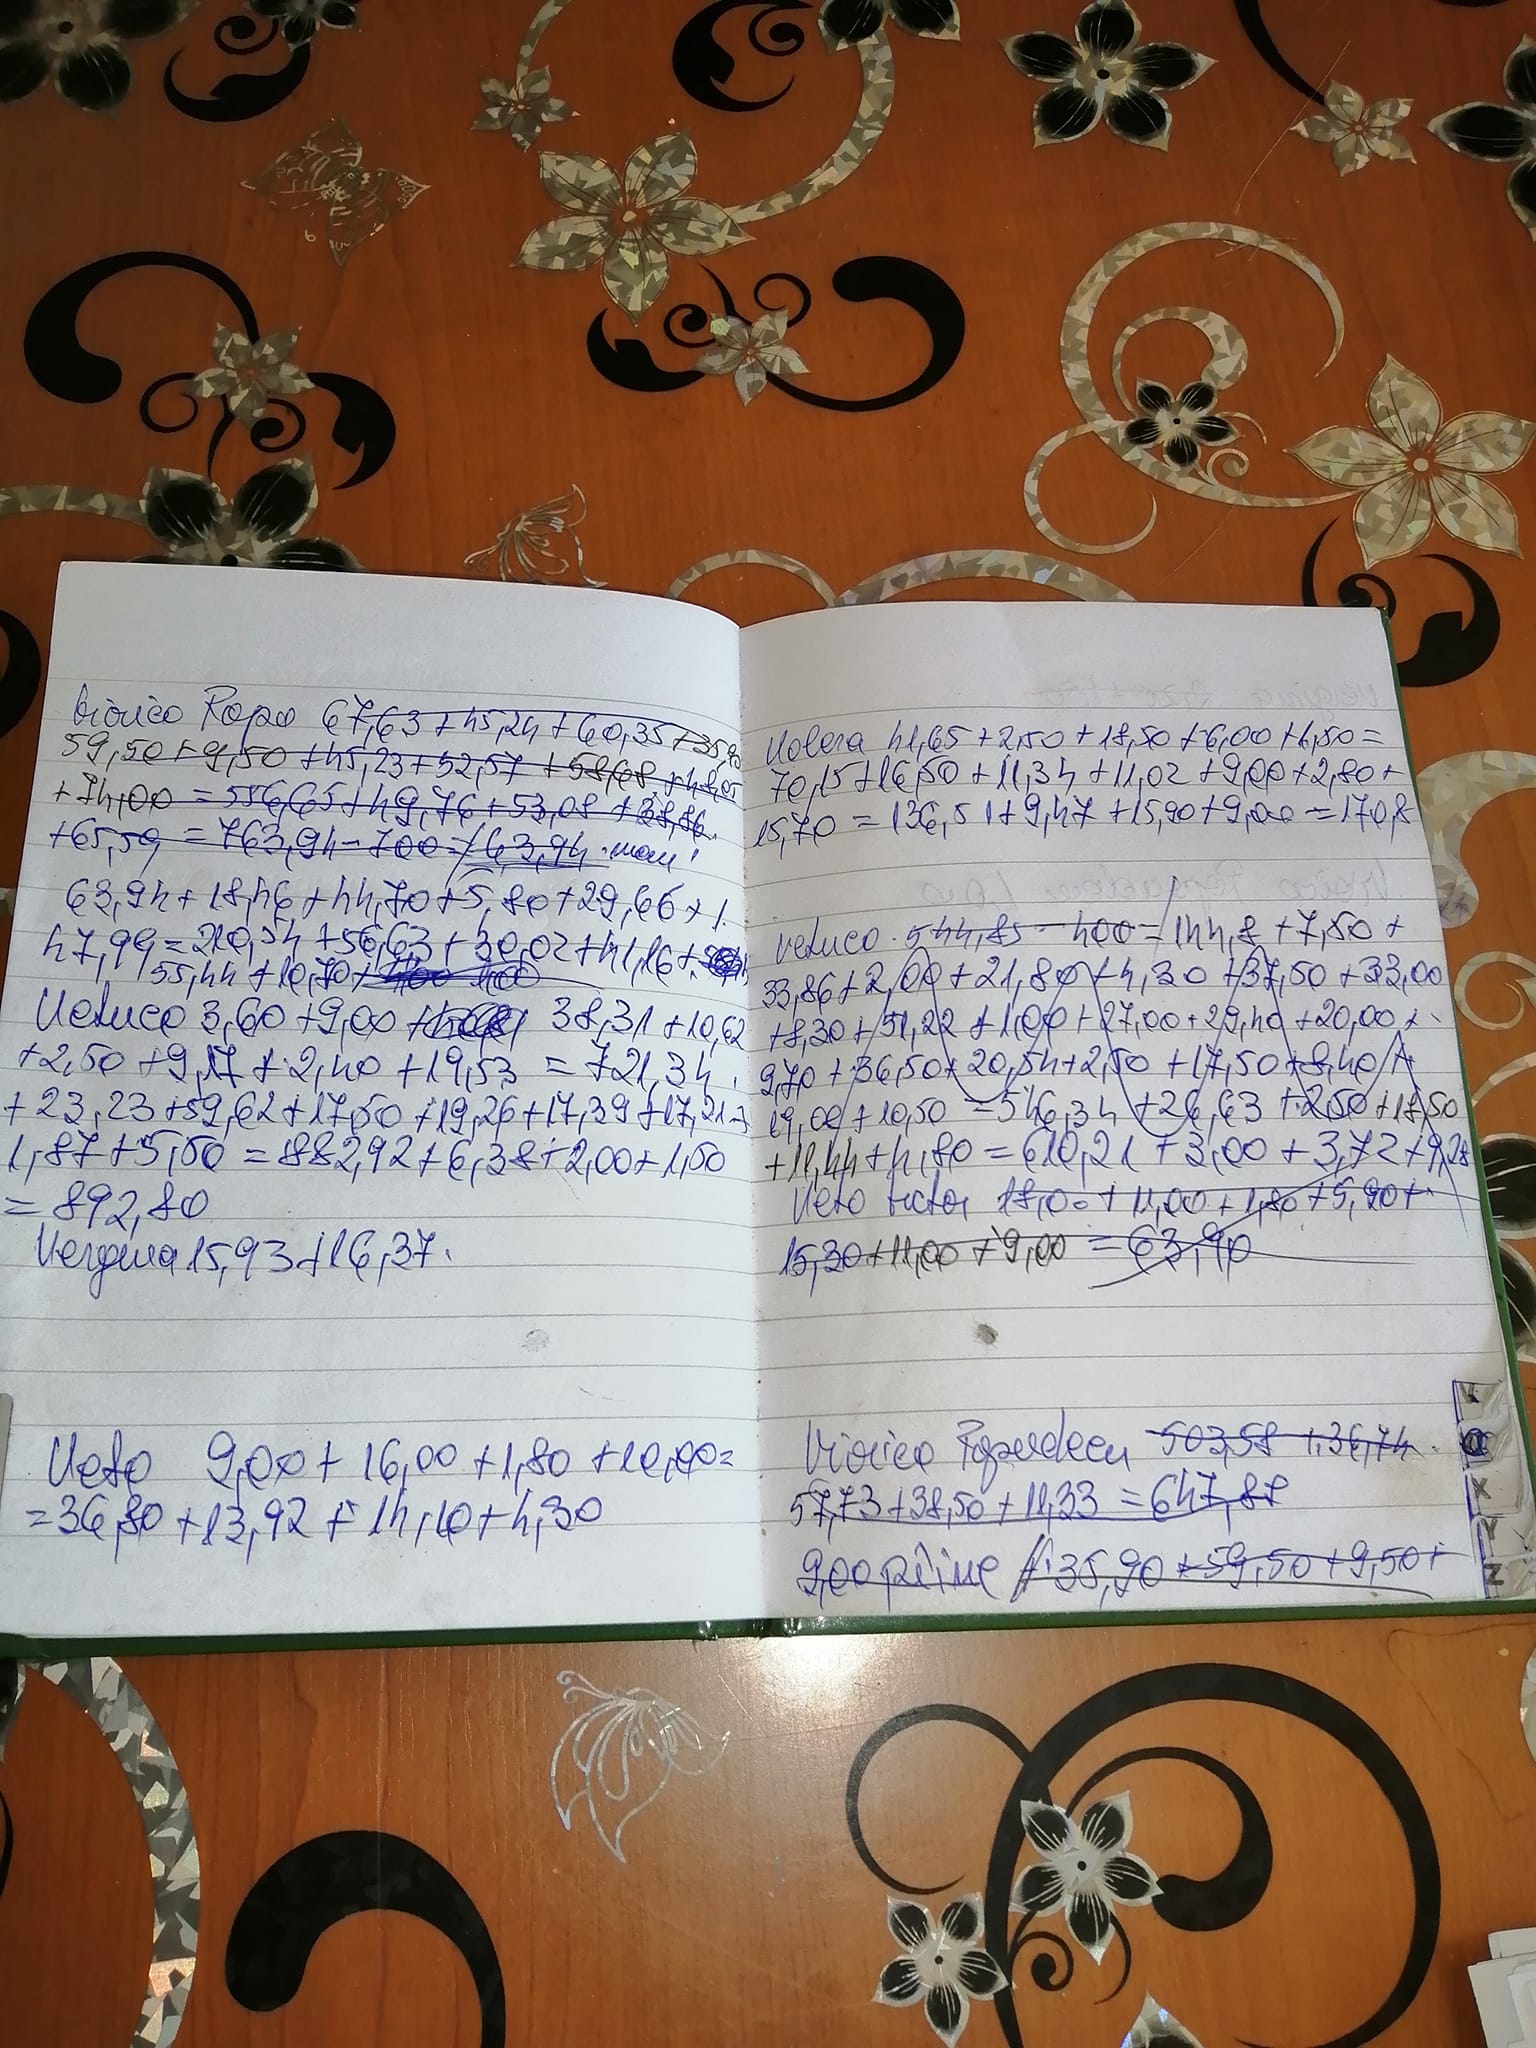 Viorica Popa 67,63 + 45,24 + 60,35 + 35,90
59,50 + 9,50 + 45,23 + 52,57 + 58,68
+ 74,00 = 556,65 + 49,76 + 53,08 + 38,86
+ 65,59 = 763,94 - 700 = 63,94
63,94 + 18,46 + 44,70 + 5,80 + 29,66 +
47,99 = 210,54 + 56,63 + 30,02 + 41,16 +
55,44 + 10,70 +
Uetuco 3,60 + 9,00 + 38,31 + 10,62
+ 2,50 + 9,17 + 2,40 + 19,53 = 721,34
+ 23,23 + 59,62 + 17,50 + 19,26 + 17,39 + 17,21 +
1,87 + 5,50 = 882,92 + 6,38 + 2,00 + 1,50
= 892,80
Vergina 15,93 + 16,37
Ueto 9,00 + 16,00 + 1,80 + 10,00 =
= 36,80 + 13,92 + 14,10 + 4,30
41,65 + 2,50 + 18,50 + 6,00 + 1,50 =
70,15 + 16,50 + 11,34 + 11,02 + 9,00 + 2,80 +
15,70 = 136,51 + 9,47 + 15,90 + 9,00 = 170,8
Uetuco 544,85 - 400 = 144,8 + 7,50 +
33,86 + 2,00 + 21,80 + 4,30 + 37,50 + 33,00
+ 8,30 + 51,22 + 1,00 + 27,00 + 29,40 + 20,00 +
9,70 + 36,50 + 20,54 + 2,50 + 17,50 + 8,40 +
19,00 + 10,50 = 546,34 + 26,63 + 2,50 + 18,50
+ 11,44 + 4,80 = 610,21 + 3,00 + 3,72 + 9,28
Ueto 18,00 + 11,00 + 1,80 + 5,90 +
15,30 + 11,00 + 9,00 = 63,90
Viorica 503,58 + 36,74
57,73 + 38,50 + 11,33 = 647,87
9,00 pîine 35,90 + 59,50 + 9,50 +
X
Y
Z